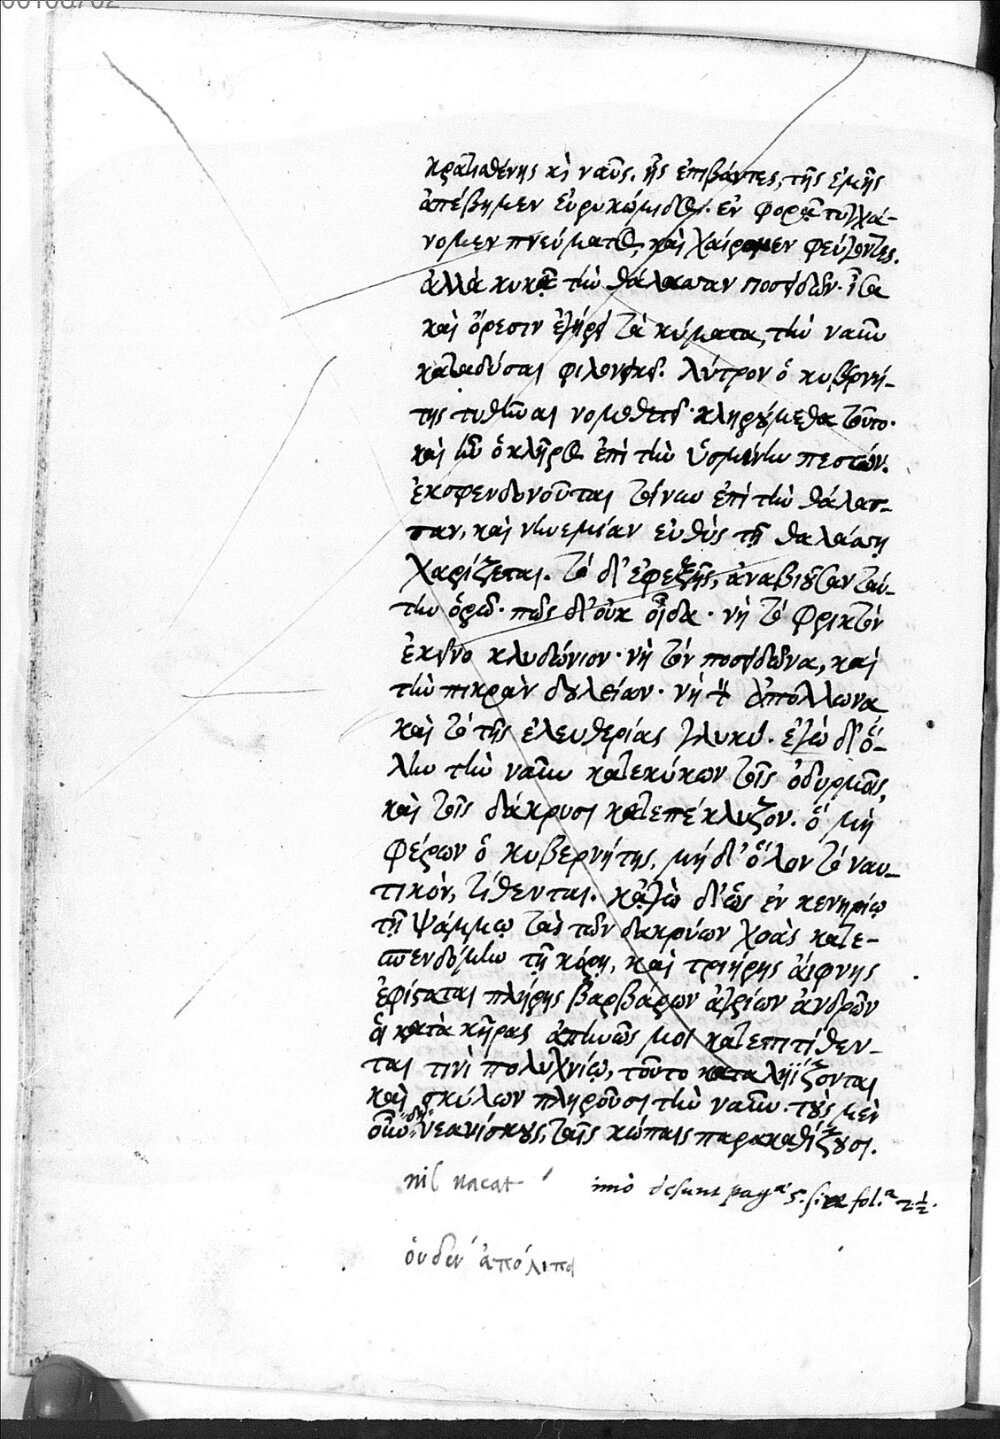 00108702
κρατισθένης κὶ ναῦς. ἧς ἐπιβάντες, τῆς ἐμῆς
ἀπέβημεν εὐρυκώμιδος. ἐν φορᾷ τυγχά-
νομεν πνεύματος, καὶ χαίρομεν φεύγοντες.
ἀλλὰ κυκᾷ τὴν θάλασσαν ποσειδῶν. ἶσα
καὶ ὄρεσιν ἐγείρει τὰ κύματα, τὴν ναῦν
καταδύσαι φιλονεικεῖ. λύτρον ὁ κυβερνή-
της τυθῆναι νομοθετεῖ. κληρούμεθα τοῦτο.
καὶ ἦν ὁ κλῆρος ἐπὶ τὴν ὑσμίνην πεσών.
ἐκσφενδονοῦται γοῦν ἐπὶ τὴν θάλασ-
σαν, καὶ νηνεμίαν εὐθὺς τῇ θαλάσσῃ
χαρίζεται. τὸ δ' ἐφεξῆς, ἀναβιοῦσαν ταύ-
την ὁρῶ. πῶς δ' οὐκ οἶδα. νὴ τὸ φρικτὸν
ἐκεῖνο κλυδώνιον. νὴ τὸν ποσειδῶνα, καὶ
τὴν πικρὰν δουλείαν. νὴ τὸν ἀπόλλωνα
καὶ τὸ τῆς ἐλευθερίας γλυκύ. ἐγὼ δ' ὅ-
λην τὴν ναῦν κατεκύκων τοῖς ὀδυρμοῖς,
καὶ τοῖς δάκρυσι κατεπέκλυζον. ὃ μὴ
φέρων ὁ κυβερνήτης, μὴ δ' ὅλον τὸ ναυ-
τικὸν, τίθενται. κἀγὼ δ' ὡς ἐν κενηρίῳ
τῇ ψάμμῳ τὰς τῶν δακρύων χοὰς κατε-
σπενδόμην τῇ κόρῃ, καὶ τριήρης αἴφνης
ἐφίσταται πλήρης βαρβάρων ἀγρίων ἀνδρῶν
οἳ κατὰ κῆρας ἀπηνῶς μοι κατεπιτίθεν-
ται τινὶ πολυχνίῳ, τοῦτο καταληίζονται
καὶ σκύλων πληροῦσι τὴν ναῦν. τοὺς μὲν
οὖν δὴ νεανίσκους, ταῖς κώπαις παρακαθίζουσι.
nil vacat imò desunt pag.ᵃ 5. sive fol.ᵃ 2 ½.
ὀυδεν ἀπόλιπα